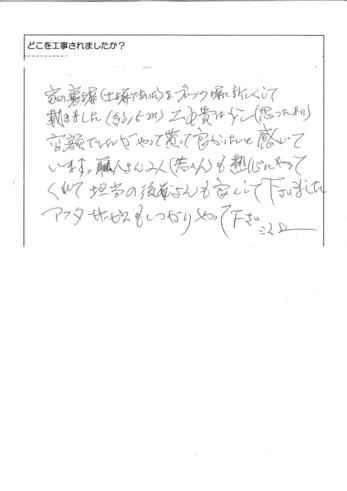 どこを工事されましたか？
家の裏塀(土塀であった)をブロック塀に新しくして
戴きました 工事費は少し(思ったより)
高額でしたがやって貰って良かったと感じて
います。職人さん2人(若い人)も熱心にやって
くれて担当の後藤さんも良くして下さいました
アフターサービスもしっかりやって下さい